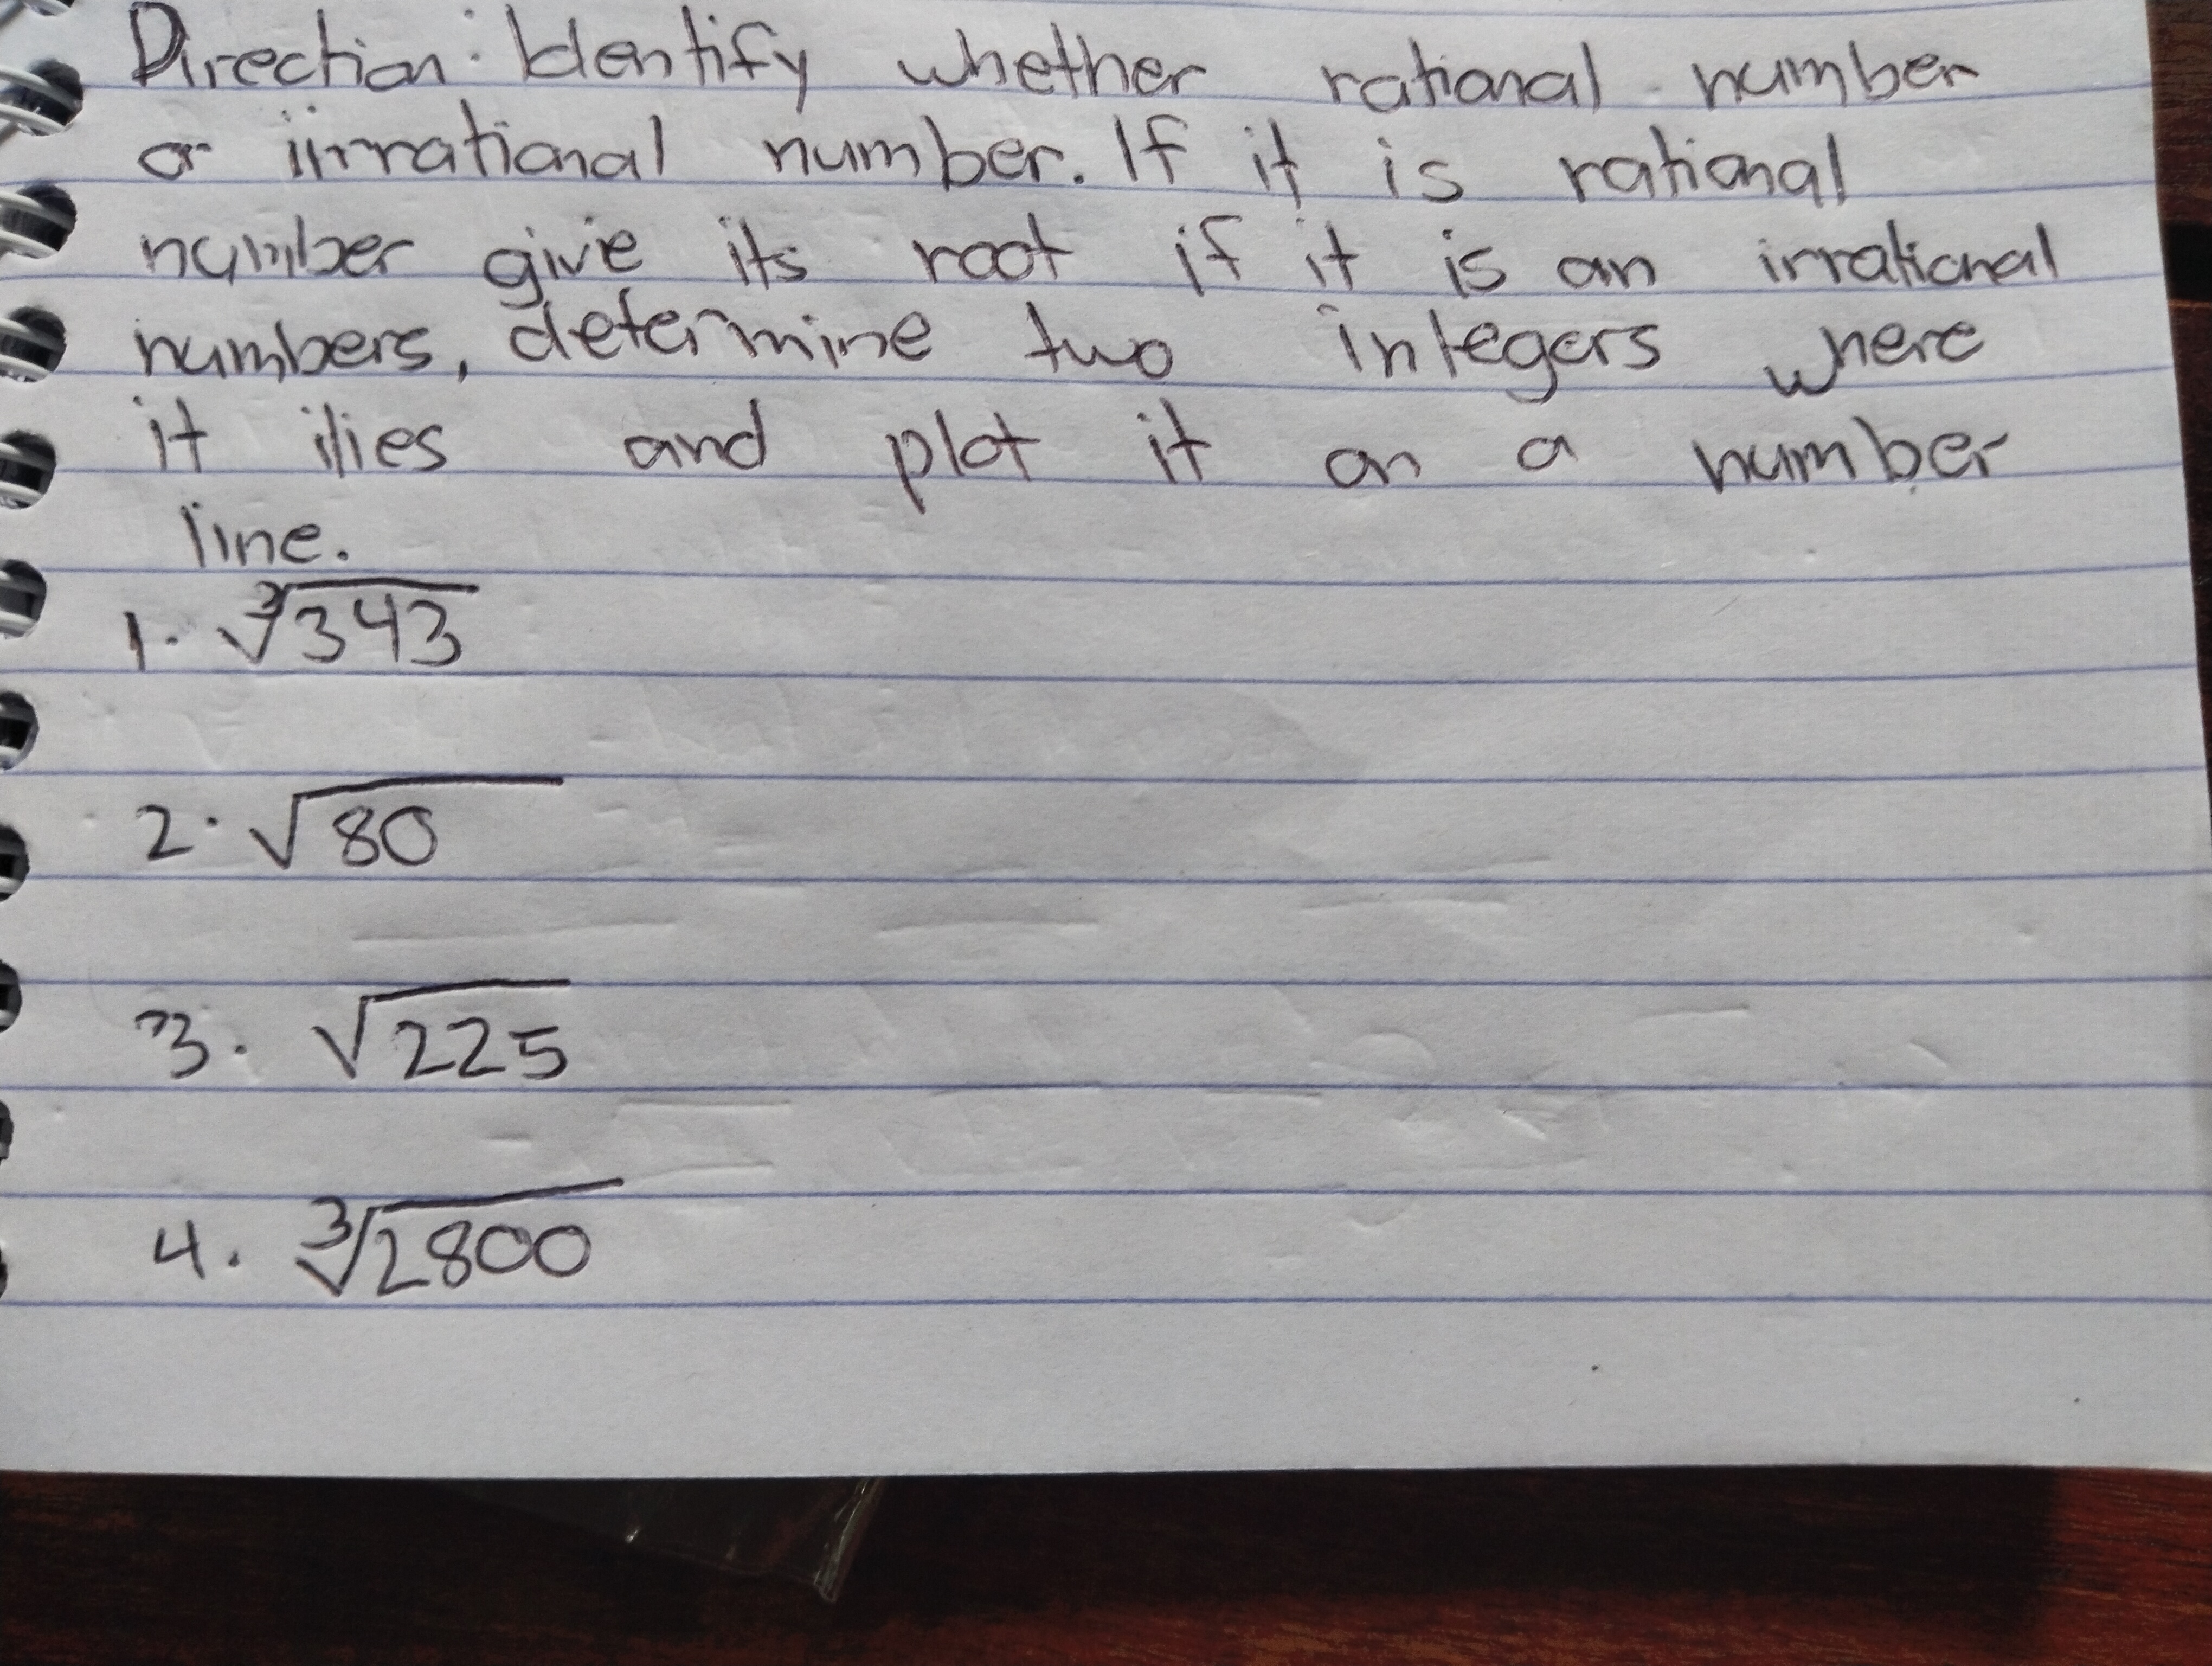 Direction: Identify whether rational number
or iirrational number. If it is rational
number give its root if it is an irrational
numbers, determine two integers where
it ilies and plot it on a number
line.
1. ∛343
2. √80
3. √225
4. ∛2800